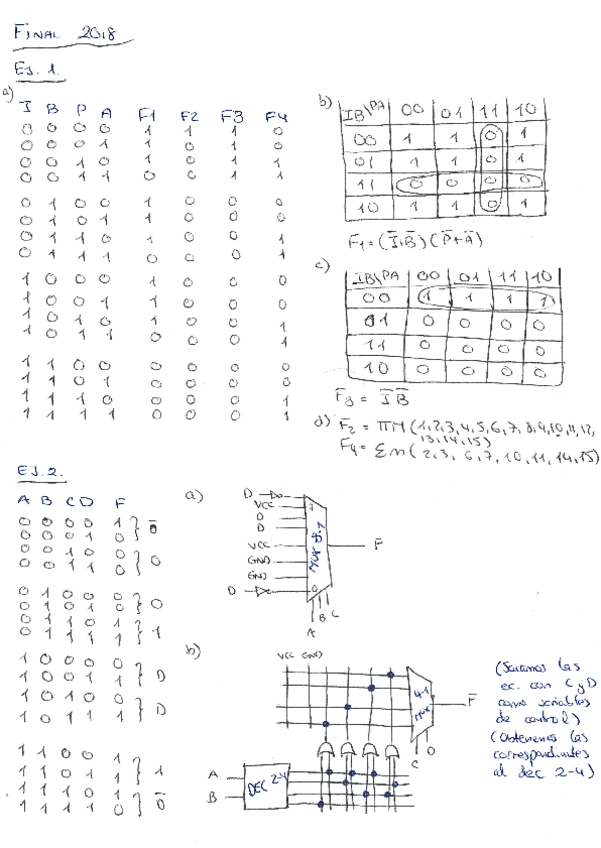 FINAL 2018
EJ. 1.
a)
I B P A F1 F2 F3 F4
0 0 0 0 1 1 1 0
0 0 0 1 1 0 1 0
0 0 1 0 1 0 1 1
0 0 1 1 0 0 1 1
0 1 0 0 1 0 0 0
0 1 0 1 1 0 0 0
0 1 1 0 1 0 0 1
0 1 1 1 0 0 0 1
1 0 0 0 1 0 0 0
1 0 0 1 1 0 0 0
1 0 1 0 1 0 0 1
1 0 1 1 0 0 0 1
1 1 0 0 0 0 0 0
1 1 0 1 0 0 0 0
1 1 1 0 0 0 0 1
1 1 1 1 0 0 0 1
b)
IB\PA 00 01 11 10
00 1 1 0 1
01 1 1 0 1
11 0 0 0 0
10 1 1 0 1
F1 = (I̅+B̅)(P̅+A̅)
c)
IB\PA 00 01 11 10
00 1 1 1 1
01 0 0 0 0
11 0 0 0 0
10 0 0 0 0
F3 = I̅ B̅
d) F2 = ΠM(1,2,3,4,5,6,7,8,9,10,11,12,
13,14,15)
F4 = Σm(2,3, 6,7,10,11,14,15)
EJ. 2.
A B C D F
0 0 0 0 1
0 0 0 1 0
0 0 1 0 0 } 0
0 0 1 1 0
0 1 0 0 0 } 0
0 1 0 1 0
0 1 1 0 1 } 1
0 1 1 1 1
1 0 0 0 0 } D
1 0 0 1 1
1 0 1 0 0 } D
1 0 1 1 1
1 1 0 0 1 } 1
1 1 0 1 1
1 1 1 0 1
1 1 1 1 0
a)
D
VCC 7
D
D
VCC
GND
GND
D 0
MUX 8.1
F
A B C
b)
VCC GND
4-1
MUX
F
C D
A
B
DEC 2-4
(Sacamos las
ec. con C y D
como variables
de control)
(Obtenemos las
correspondientes
al dec 2-4)